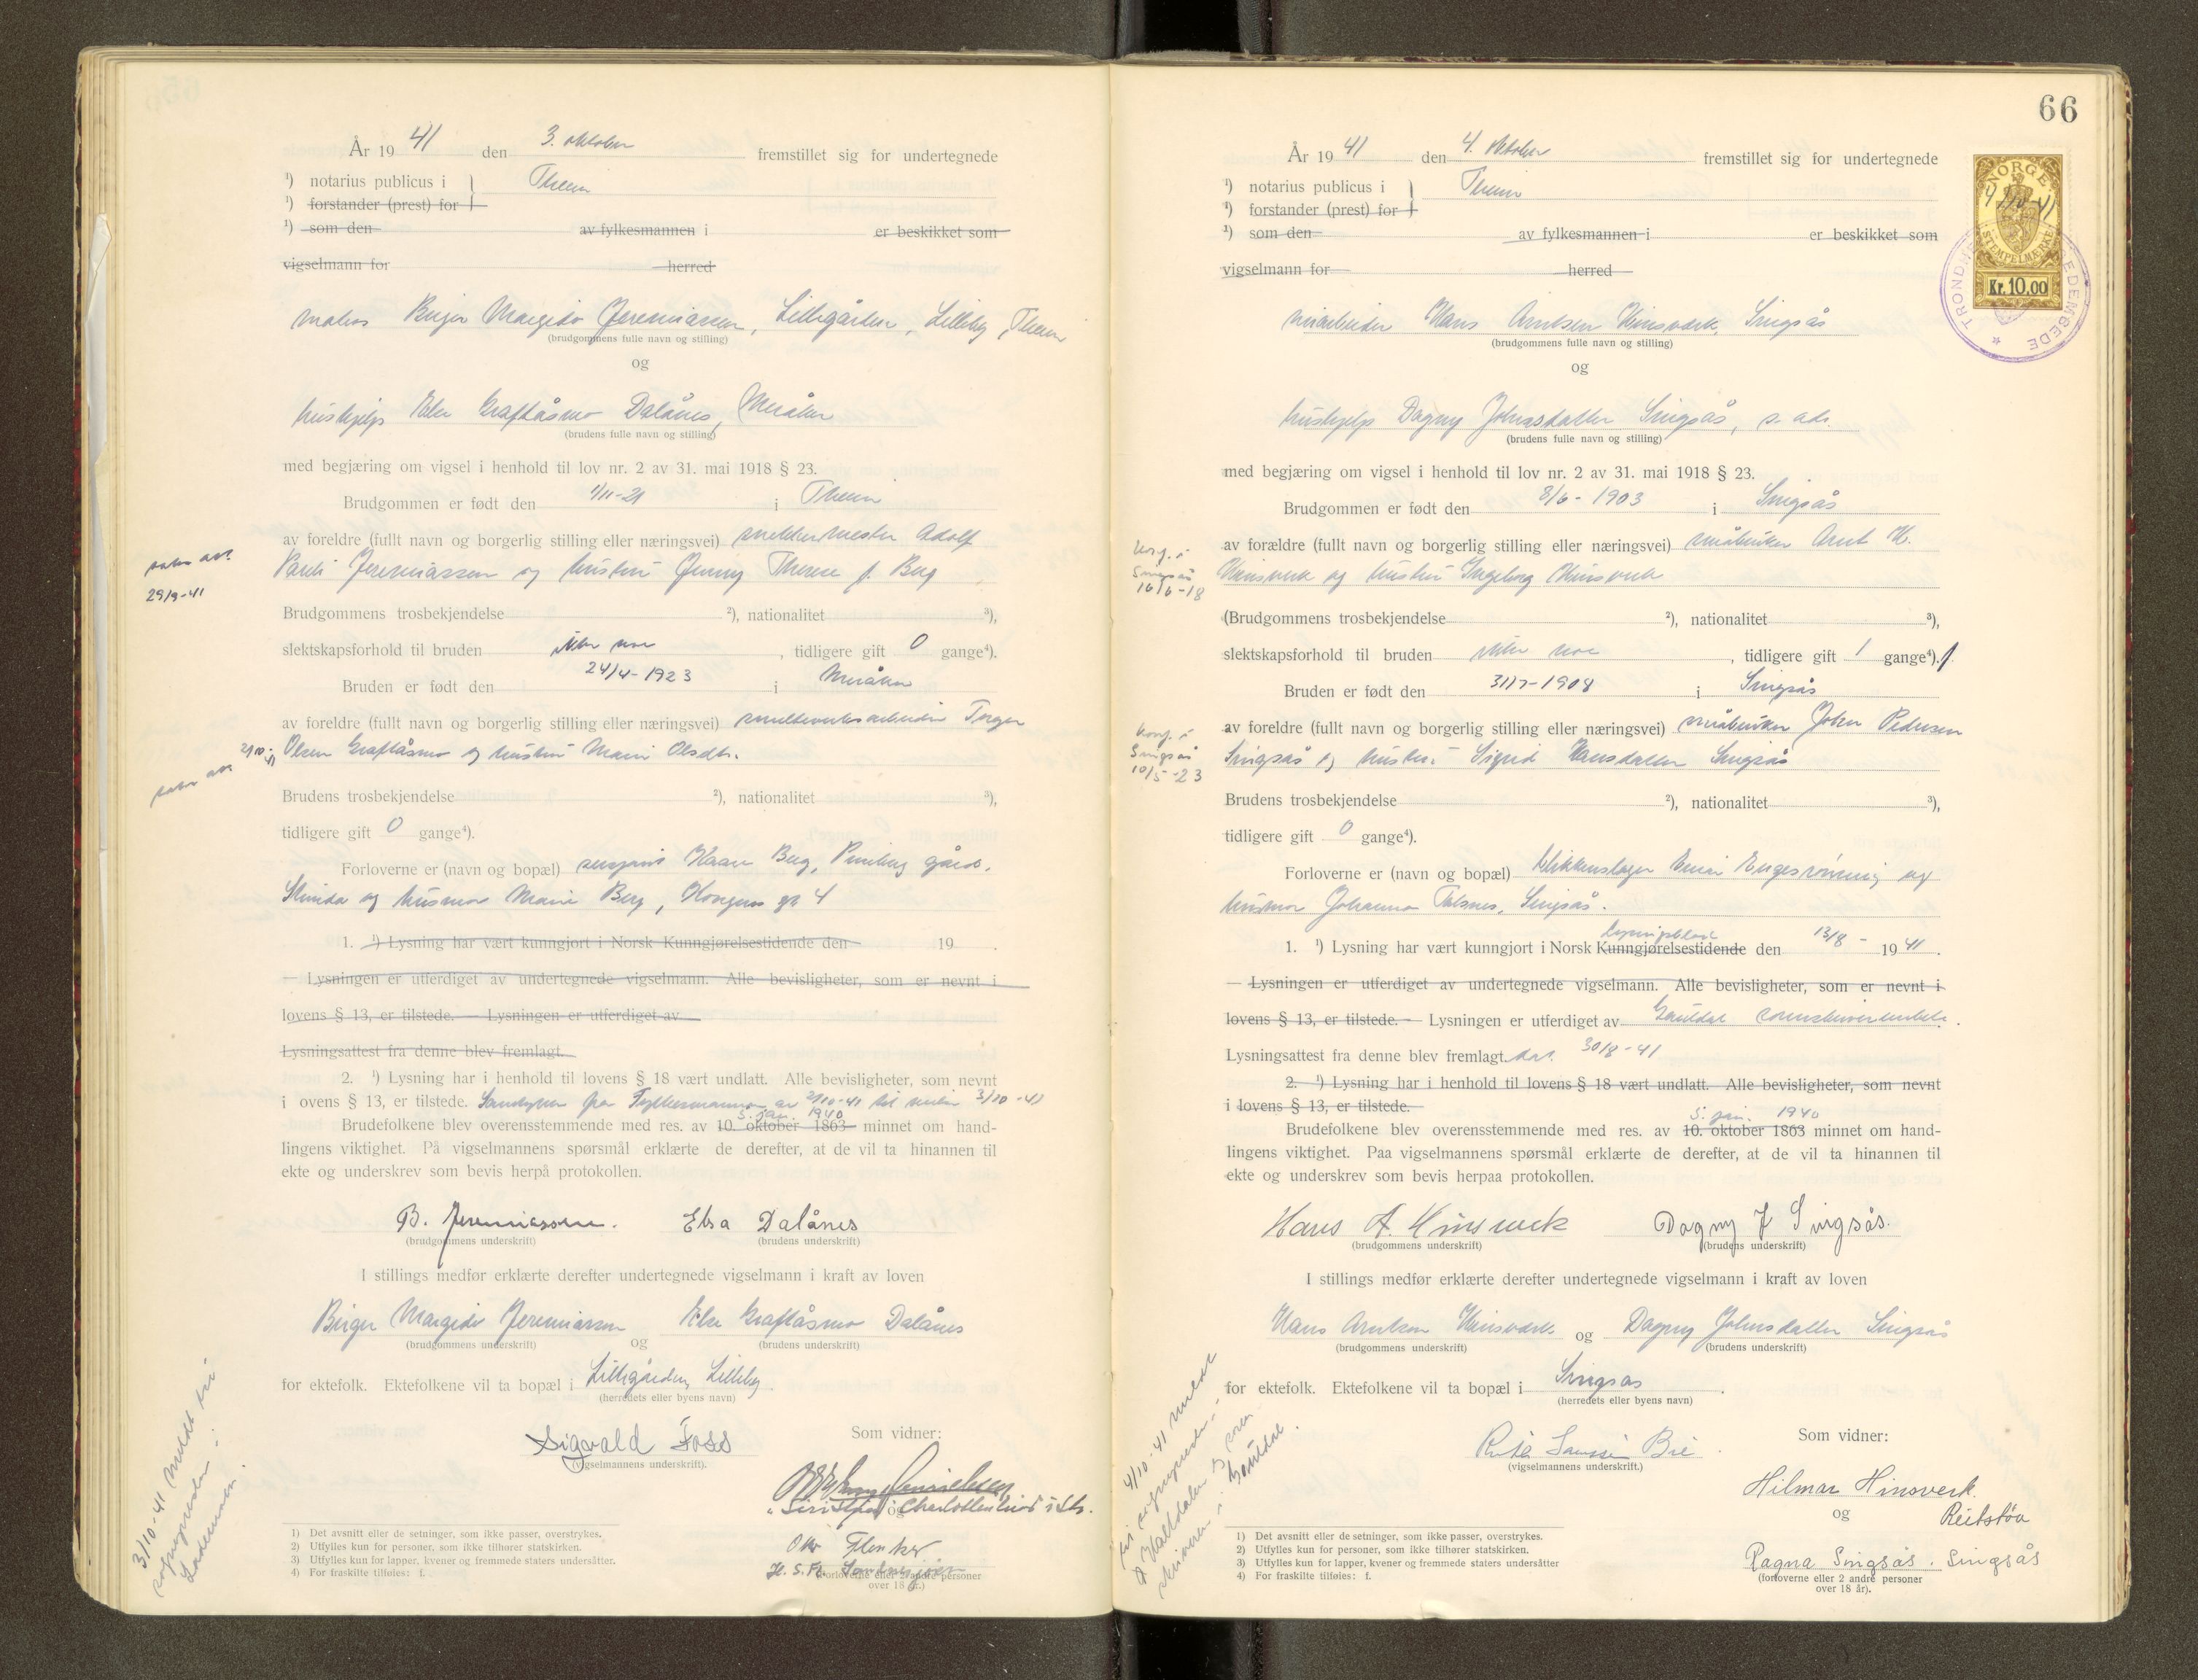 År 19 41 den 3. oktober fremstillet sig for undertegnede
¹) notarius publicus i } Trheim
¹) forstander (prest) for
¹) som den av fylkesmannen i er beskikket som
vigselmann for herred
Birger Margido Jeremiassen, Lillegården, Lilleby, Trheim
(brudgommens fulle navn og stilling)
og
hushjelp Else Kraftåsmo Dalånes, Meråker
(brudens fulle navn og stilling)
med begjæring om vigsel i henhold til lov nr. 2 av 31. mai 1918 § 23.
Brudgommen er født den 1/11-21 i Trheim
av foreldre (fullt navn og borgerlig stilling eller næringsvei) snekkermester Adolf
Pauli Jeremiassen og hustru Jenny Therese f. Berg
29/9-41
Brudgommens trosbekjendelse ²), nationalitet ³),
slektskapsforhold til bruden ikke noe, tidligere gift 0 gange⁴).
Bruden er født den 24/4-1923 i Meråker
av foreldre (fullt navn og borgerlig stilling eller næringsvei) smelteverksarbeider Torger
Olsen Kraftåsmo og hustru Marie Olsdtr.
2/10-41
Brudens trosbekjendelse ²), nationalitet ³),
tidligere gift 0 gange⁴).
Forloverne er (navn og bopæl) sersjant Haae Berg, gård,
Strinda og husmor Marie Berg, Kongens gt 4
1. ¹) Lysning har vært kunngjort i Norsk Kunngjørelsestidende den 19 .
— Lysningen er utferdiget av undertegnede vigselmann. Alle bevisligheter, som er nevnt i
lovens § 13, er tilstede. — Lysningen er utferdiget av
Lysningsattest fra denne blev fremlagt.
2. ¹) Lysning har i henhold til lovens § 18 vært undlatt. Alle bevisligheter, som nevnt
i ovens § 13, er tilstede. Samtykke fra Fylkesmannen av 2/10-41 3/10-41
5. jan. 1940
Brudefolkene blev overensstemmende med res. av 10. oktober 1863 minnet om hand-
lingens viktighet. På vigselmannens spørsmål erklærte de derefter, at de vil ta hinannen til
ekte og underskrev som bevis herpå protokollen.
B. Jeremiassen. Elsa Dalånes
(brudgommens underskrift) (brudens underskrift)
I stillings medfør erklærte derefter undertegnede vigselmann i kraft av loven
Birger Margido Jeremiassen og Else Kraftåsmo Dalånes
(brudgommens underskrift) (brudens underskrift)
for ektefolk. Ektefolkene vil ta bopæl i Lillegården, Lilleby.
(herredets eller byens navn)
Sigvald Foss
(vigselmannens underskrift).
Som vidner:
og Charlottenlund i Str.
(forloverne eller 2 andre personer
over 18 år.)
3/10-41 meldt til
sognepresten i
Lademoen.
1) Det avsnitt eller de setninger, som ikke passer, overstrykes.
2) Utfylles kun for personer, som ikke tilhører statskirken.
3) Utfylles kun for lapper, kvener og fremmede staters undersåtter.
4) For fraskilte tilføies: f.
66
År 19 41 den 4. oktober fremstillet sig for undertegnede
¹) notarius publicus i } Trheim
¹) forstander (prest) for
¹) som den av fylkesmannen i er beskikket som
vigselmann for herred
NORGE
4/10-41
STEMPELMERKE
Kr. 10.00
Hans Arntsen Hinsverk, Singsås
(brudgommens fulle navn og stilling)
og
hushjelp Dagny Johnsdatter Singsås, s. ads.
(brudens fulle navn og stilling)
med begjæring om vigsel i henhold til lov nr. 2 av 31. mai 1918 § 23.
Brudgommen er født den 8/6 - 1903 i Singsås
av forældre (fullt navn og borgerlig stilling eller næringsvei) småbruker Arnt H.
Hinsverk og hustru Ingeborg Hinsverk
konf. i
Singsås
16/6-18
(Brudgommens trosbekjendelse ²), nationalitet ³),
slektskapsforhold til bruden ikke noe, tidligere gift 1 gange⁴). f.
Bruden er født den 31/7-1908 i Singsås
av foreldre (fullt navn og borgerlig stilling eller næringsvei) småbruker John Pedersen
Singsås og hustru Sigrid Hansdatter Singsås
konf. i
Singsås
10/5-23
Brudens trosbekjendelse ²), nationalitet ³),
tidligere gift 0 gange⁴).
Forloverne er (navn og bopæl) blikkenslager Einar Engesrønning og
husmor Johanna Talsnes, Singsås.
lysningsblad
1. ¹) Lysning har vært kunngjort i Norsk Kunngjørelsestidende den 13/8 - 19 41.
— Lysningen er utferdiget av undertegnede vigselmann. Alle bevisligheter, som er nevnt i
lovens § 13, er tilstede. — Lysningen er utferdiget av Gauldal sorenskriverembete.
Lysningsattest fra denne blev fremlagt. dat. 30/8-41
2. ¹) Lysning har i henhold til lovens § 18 vært undlatt. Alle bevisligheter, som nevnt
i lovens § 13, er tilstede.
5. jan. 1940
Brudefolkene blev overensstemmende med res. av 10. oktober 1863 minnet om hand-
lingens viktighet. Paa vigselmannens spørsmål erklærte de derefter, at de vil ta hinannen til
ekte og underskrev som bevis herpaa protokollen.
Hans A. Hinsverk Dagny J Singsås.
(brudgommens underskrift) (brudens underskrift)
I stillings medfør erklærte derefter undertegnede vigselmann i kraft av loven
Hans Arntsen Hinsverk og Dagny Johnsdatter Singsås
(brudgommens underskrift) (brudens underskrift)
for ektefolk. Ektefolkene vil ta bopæl i Singsås.
(herredets eller byens navn)
(vigselmannens underskrift.)
Som vidner:
Hilmar Hinsverk.
og Reitstøa
Ragna Singsås. Singsås
(forloverne eller 2 andre personer
over 18 år).
4/10-41 meldt
til sognepresten i
Haltdalen og soren-
skriveren i Gauldal.
1) Det avsnitt eller de setninger, som ikke passer, overstrykes.
2) Utfylles kun for personer, som ikke tilhører statskirken.
3) Utfylles kun for lapper, kvener og fremmede staters undersåtter
4) For fraskilte tilføies: f.